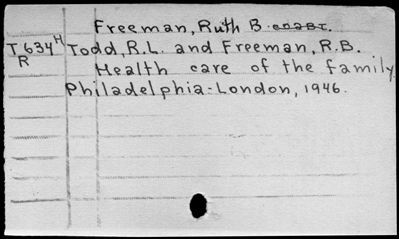 Freeman, Ruth B.
T634H Todd, R.L. and Freeman, R.B.
R Health care of the family
Philadelphia-London, 1946.